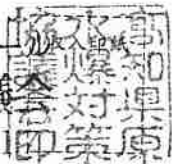 高知県原
水爆対策
協議会印
収入印紙